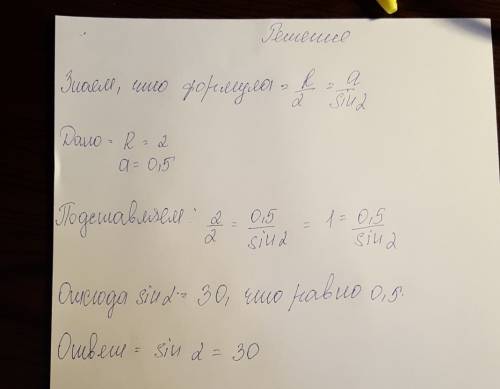 Решение
Знаем, что формула = R/2 = a/sin α
Дано = R = 2
a = 0,5
Подставляем: 2/2 = 0,5/sin α = 1 = 0,5/sin α
Отсюда sin α = 30, что равно 0,5.
Ответ = sin α = 30